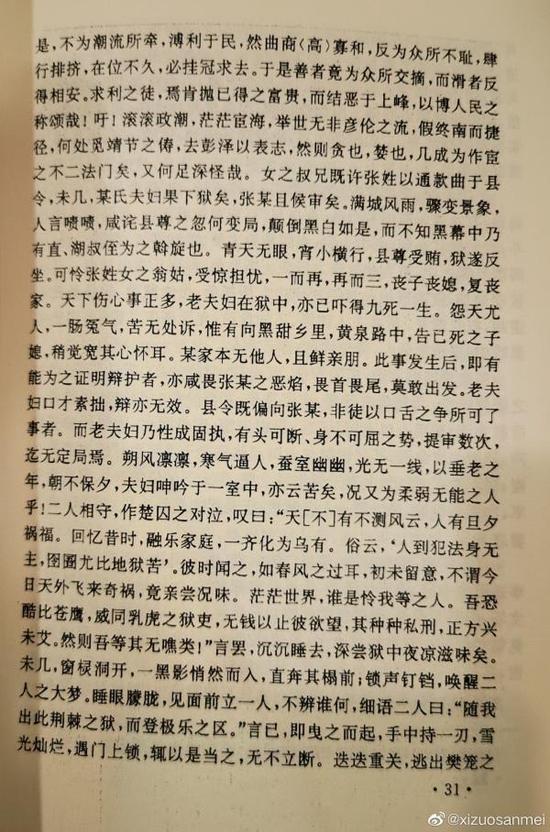 是，不为潮流所牵，溥利于民，然曲商（高）寡和，反为众所不耻，肆
行排挤，在位不久，必挂冠求去。于是善者竟为众所交摘，而滑者反
得相安。求利之徒，焉肯抛已得之富贵，而结恶于上峰，以博人民之
称颂哉！吁！滚滚政潮，茫茫宦海，举世无非彦伦之流，假终南而捷
径，何处觅靖节之俦，去彭泽以表志，然则贪也，婪也，几成为作宦
之不二法门矣，又何足深怪哉。女之叔兄既许张姓以通款曲于县
令，未几，某氏夫妇果下狱矣，张某且候审矣。满城风雨，骤变景象，
人言啧啧，咸诧县尊之忽何变局，颠倒黑白如是，而不知黑幕中乃
有直、湖叔侄为之斡旋也。青天无眼，宵小横行，县尊受贿，狱遂反
坐。可怜张姓女之翁姑，受惊担忧，一而再，再而三，丧子丧媳，复丧
家。天下伤心事正多，老夫妇在狱中，亦已吓得九死一生。怨天尤
人，一肠冤气，苦无处诉，惟有向黑甜乡里，黄泉路中，告已死之子
媳，稍觉宽其心怀耳。某家本无他人，且鲜亲朋。此事发生后，即有
能为之证明辩护者，亦咸畏张某之恶焰，畏首畏尾，莫敢出发。老夫
妇口才素拙，辩亦无效。县令既偏向张某，非徒以口舌之争所可了
事者。而老夫妇乃性成固执，有头可断、身不可屈之势，提审数次，
迄无定局焉。朔风凛凛，寒气逼人，蚕室幽幽，光无一线，以垂老之
年，朝不保夕，夫妇呻吟于一室中，亦云苦矣，况又为柔弱无能之人
乎！二人相守，作楚囚之对泣，叹曰：“天[不]有不测风云，人有旦夕
祸福。回忆昔时，融乐家庭，一齐化为乌有。俗云，‘人到犯法身无
主，囹圄尤比地狱苦’。彼时闻之，如春风之过耳，初未留意，不谓今
日天外飞来奇祸，竟亲尝况味。茫茫世界，谁是怜我等之人。吾恐
酷比苍鹰，威同乳虎之狱吏，无钱以止彼欲望，其种种私刑，正方兴
未艾。然则吾等其无噍类！”言罢，沉沉睡去，深尝狱中夜凉滋味矣。
未几，窗棂洞开，一黑影悄然而入，直奔其榻前；锁声钉铛，唤醒二
人之大梦。睡眼朦胧，见面前立一人，不辨谁何，细语二人曰：“随我
出此荆棘之狱，而登极乐之区。”言已，即曳之而起，手中持一刃，雪
光灿烂，遇门上锁，辄以是当之，无不立断。迭迭重关，逃出樊笼之
·31·
@xizuosanmei